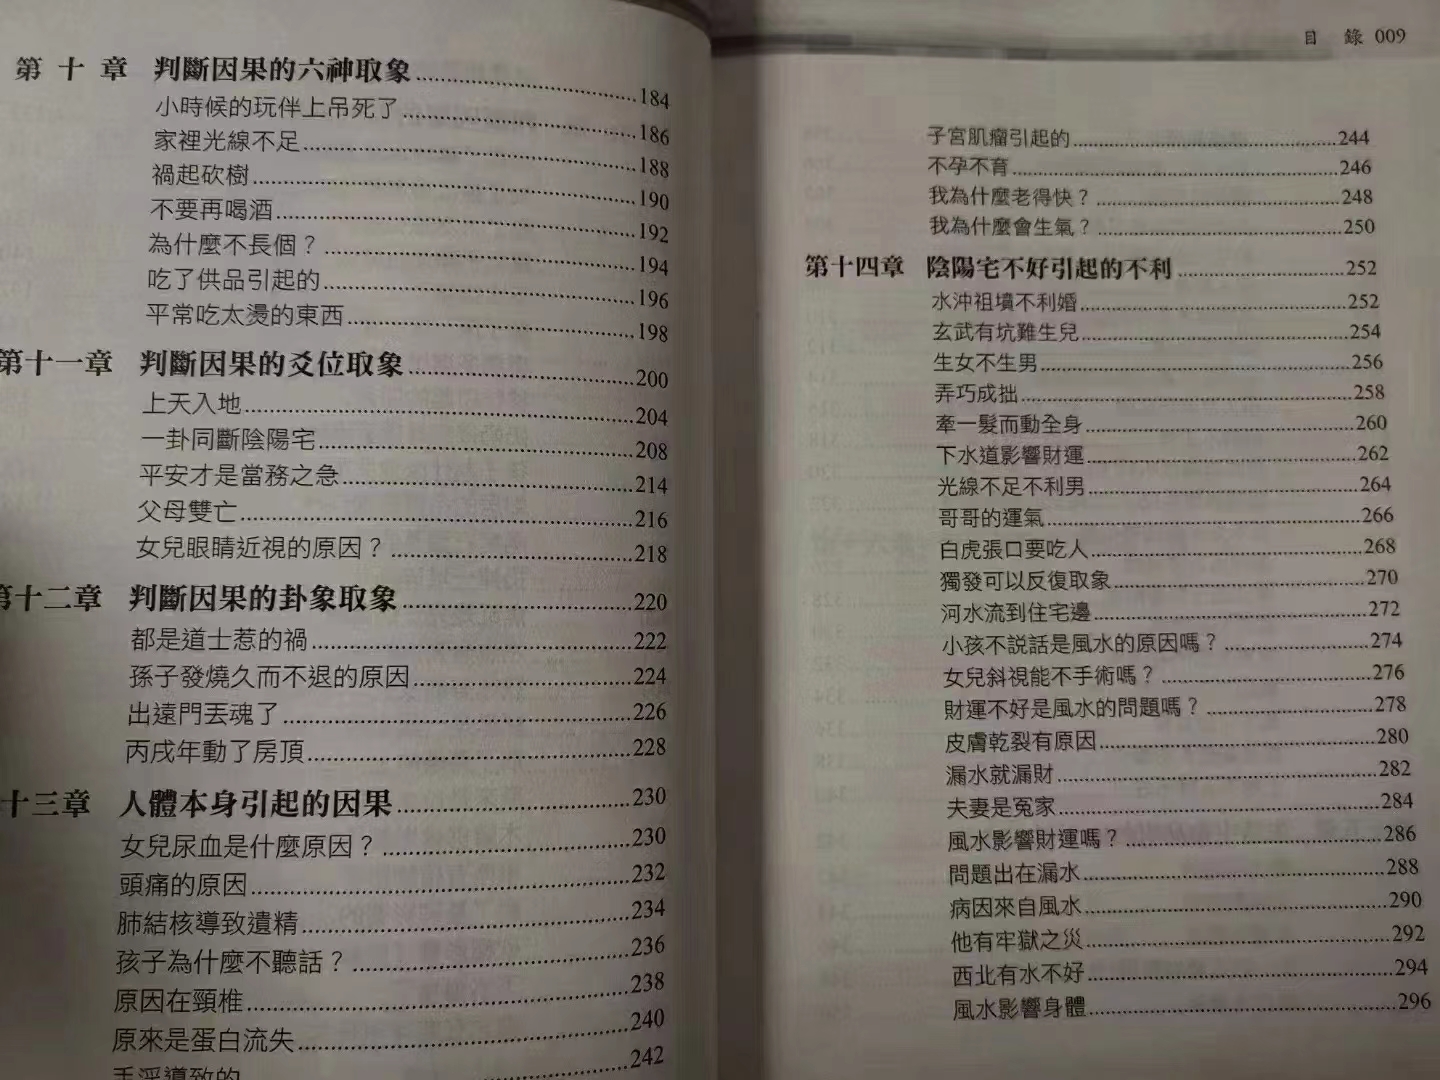 第十章 判斷因果的六神取象 184
小時候的玩伴上吊死了 186
家裡光線不足 188
禍起砍樹 190
不要再喝酒 192
為什麼不長個？ 194
吃了供品引起的 196
平常吃太燙的東西 198
第十一章 判斷因果的爻位取象 200
上天入地 204
一卦同斷陰陽宅 208
平安才是當務之急 214
父母雙亡 216
女兒眼睛近視的原因？ 218
第十二章 判斷因果的卦象取象 220
都是道士惹的禍 222
孫子發燒久而不退的原因 224
出遠門丟魂了 226
丙戌年動了房頂 228
十三章 人體本身引起的因果 230
女兒尿血是什麼原因？ 230
頭痛的原因 232
肺結核導致遺精 234
孩子為什麼不聽話？ 236
原因在頸椎 238
原來是蛋白流失 240
手淫導致的 242
目 錄 009
子宮肌瘤引起的 244
不孕不育 246
我為什麼老得快？ 248
我為什麼會生氣？ 250
第十四章 陰陽宅不好引起的不利 252
水沖祖墳不利婚 252
玄武有坑難生兒 254
生女不生男 256
弄巧成拙 258
牽一髮而動全身 260
下水道影響財運 262
光線不足不利男 264
哥哥的運氣 266
白虎張口要吃人 268
獨發可以反復取象 270
河水流到住宅邊 272
小孩不說話是風水的原因嗎？ 274
女兒斜視能不手術嗎？ 276
財運不好是風水的問題嗎？ 278
皮膚乾裂有原因 280
漏水就漏財 282
夫妻是冤家 284
風水影響財運嗎？ 286
問題出在漏水 288
病因來自風水 290
他有牢獄之災 292
西北有水不好 294
風水影響身體 296